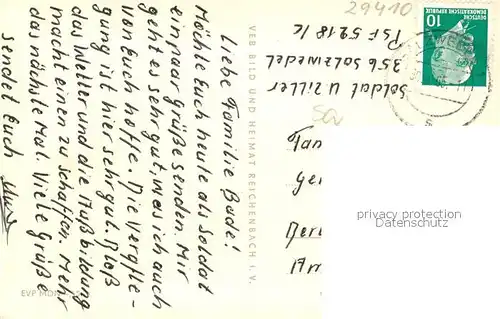 29410
Liebe Familie Bade!
Möchte Euch heute als Soldat
ein paar Grüße senden. Mir
geht es sehr gut, was ich auch
von Euch hoffe. Die Verpfle-
gung ist hier sehr gut. Bloß
das Wetter und die Ausbildung
macht einen zu schaffen. Mehr
das nächste Mal. Viele Grüße
sendet Euch
VEB BILD UND HEIMAT REICHENBACH I. V.
EVP MDN
Soldat U. Ziller
356 Salzwedel
PSF 5918/c
DEUTSCHE DEMOKRATISCHE REPUBLIK
10
Fam
privacy protection
Datenschutz